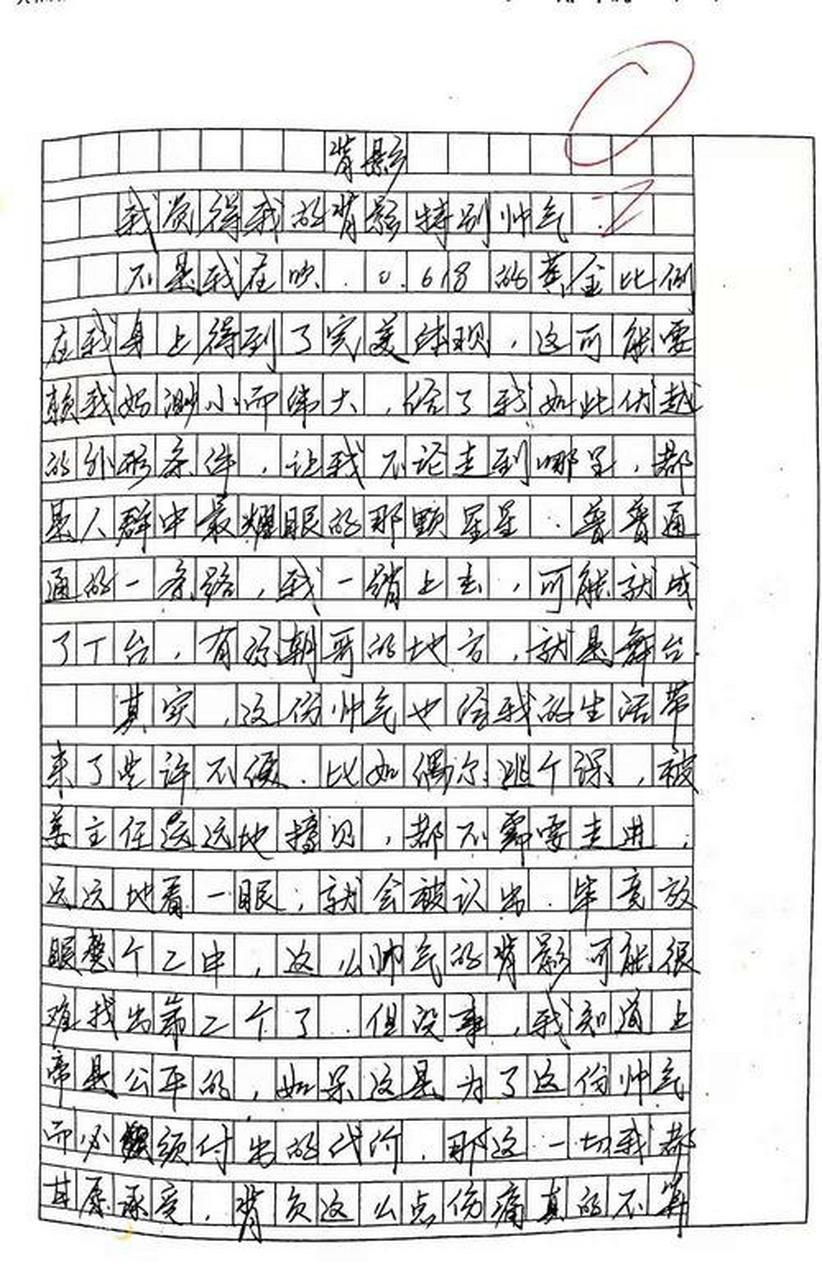 背影
我觉得我的背影特别帅气
不是我在吹.0.618的黄金比例
在我身上得到了完美体现,这可能要
赖我妈渺小而伟大,给了我如此优越
的外形条件,让我不论走到哪里,都
是人群中最耀眼的那颗星星.普普通
通的一条路,我一踏上去,可能就成
了T台,有你朝哥的地方,就是舞台.
其实,这份帅气也给我的生活带
来了些许不便.比如偶尔逃个课,被
姜主任远远地撞见,都不需要走进,
远远地看一眼,就会被认出.毕竟放
眼整个二中,这么帅气的背影可能很
难找出第二个了.但没事,我知道上
帝是公平的,如果这是为了这份帅气
而必须付出的代价,那这一切我都
甘愿承受,背负这么点伤痛真的不算